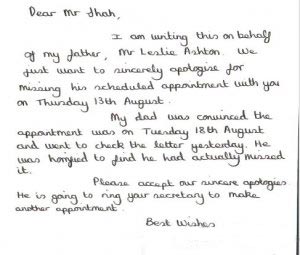 Dear Mr Shah,
I am writing this on behalf
of my father, Mr Leslie Ashton. We
just want to sincerely apologise for
missing his scheduled appointment with you
on Thursday 13th August.
My dad was convinced the
appointment was on Tuesday 18th August
and went to check the letter yesterday. He
was horrified to find he had actually missed
it.
Please accept our sincere apologies.
He is going to ring your secretary to make
another appointment.
Best Wishes